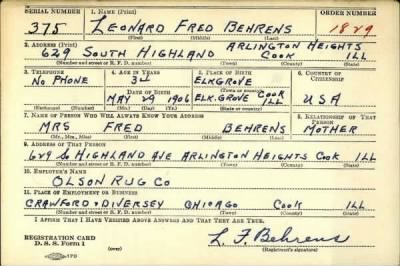 SERIAL NUMBER 1. NAME (Print) ORDER NUMBER
375 LEONARD FRED BEHRENS 1829
(First) (Middle) (Last)
2. ADDRESS (Print)
629 SOUTH HIGHLAND ARLINGTON HEIGHTS COOK ILL
(Number and street or R. F. D. number) (Town) (County) (State)
3. TELEPHONE 4. AGE IN YEARS 5. PLACE OF BIRTH 6. COUNTRY OF CITIZENSHIP
NO PHONE 34 ELKGROVE
DATE OF BIRTH
MAY 29 1906 ELK.GROVE COOK ILL USA
(Exchange) (No.) (Mo.) (Day) (Yr.) (Town) (County) (State or country)
7. NAME OF PERSON WHO WILL ALWAYS KNOW YOUR ADDRESS 8. RELATIONSHIP OF THAT PERSON
MRS FRED BEHRENS MOTHER
(Mr., Mrs., Miss) (First) (Middle) (Last)
9. ADDRESS OF THAT PERSON
629 So HIGHLAND AVE ARLINGTON HEIGHTS COOK ILL
(Number and street or R. F. D. number) (Town) (County) (State)
10. EMPLOYER'S NAME
OLSON RUG CO
11. PLACE OF EMPLOYMENT OR BUSINESS
CRAWFORD & DIVERSEY CHICAGO COOK ILL
(Number and street or R. F. D. number) (Town) (County) (State)
I AFFIRM THAT I HAVE VERIFIED ABOVE ANSWERS AND THAT THEY ARE TRUE.
REGISTRATION CARD
D. S. S. Form 1
(over)
L. F. Behrens
(Registrant's signature)